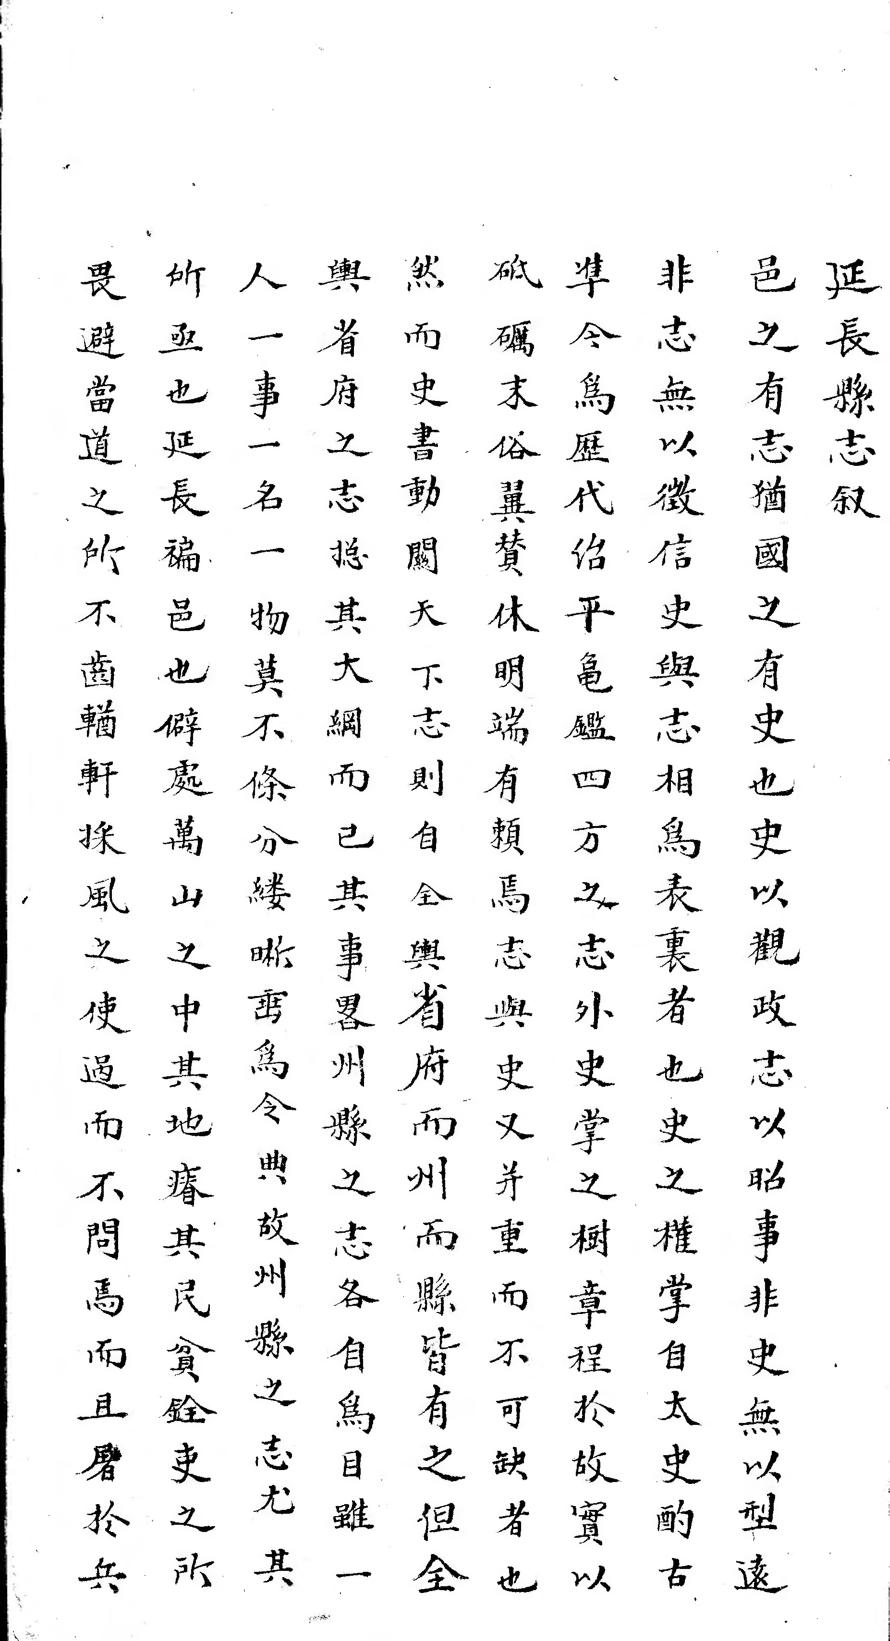 延長縣志叙
邑之有志猶國之有史也史以觀政志以昭事非史無以型遠
非志無以徵信史與志相爲表裏者也史之權掌自太史酌古
凖今爲歷代治平龜鑑四方之志外史掌之樹章程於故實以
砥礪末俗翼贊休明端有頼焉志與史又并重而不可缺者也
然而史書動關天下志則自全輿省府而州而縣皆有之但全
輿省府之志揔其大綱而已其事畧州縣之志各自爲目雖一
人一事一名一物莫不條分縷晰覃爲令典故州縣之志尤其
所亟也延長褊邑也僻處萬山之中其地瘠其民貧銓吏之所
畏避當道之所不齒輶軒採風之使過而不問焉而且屠於兵